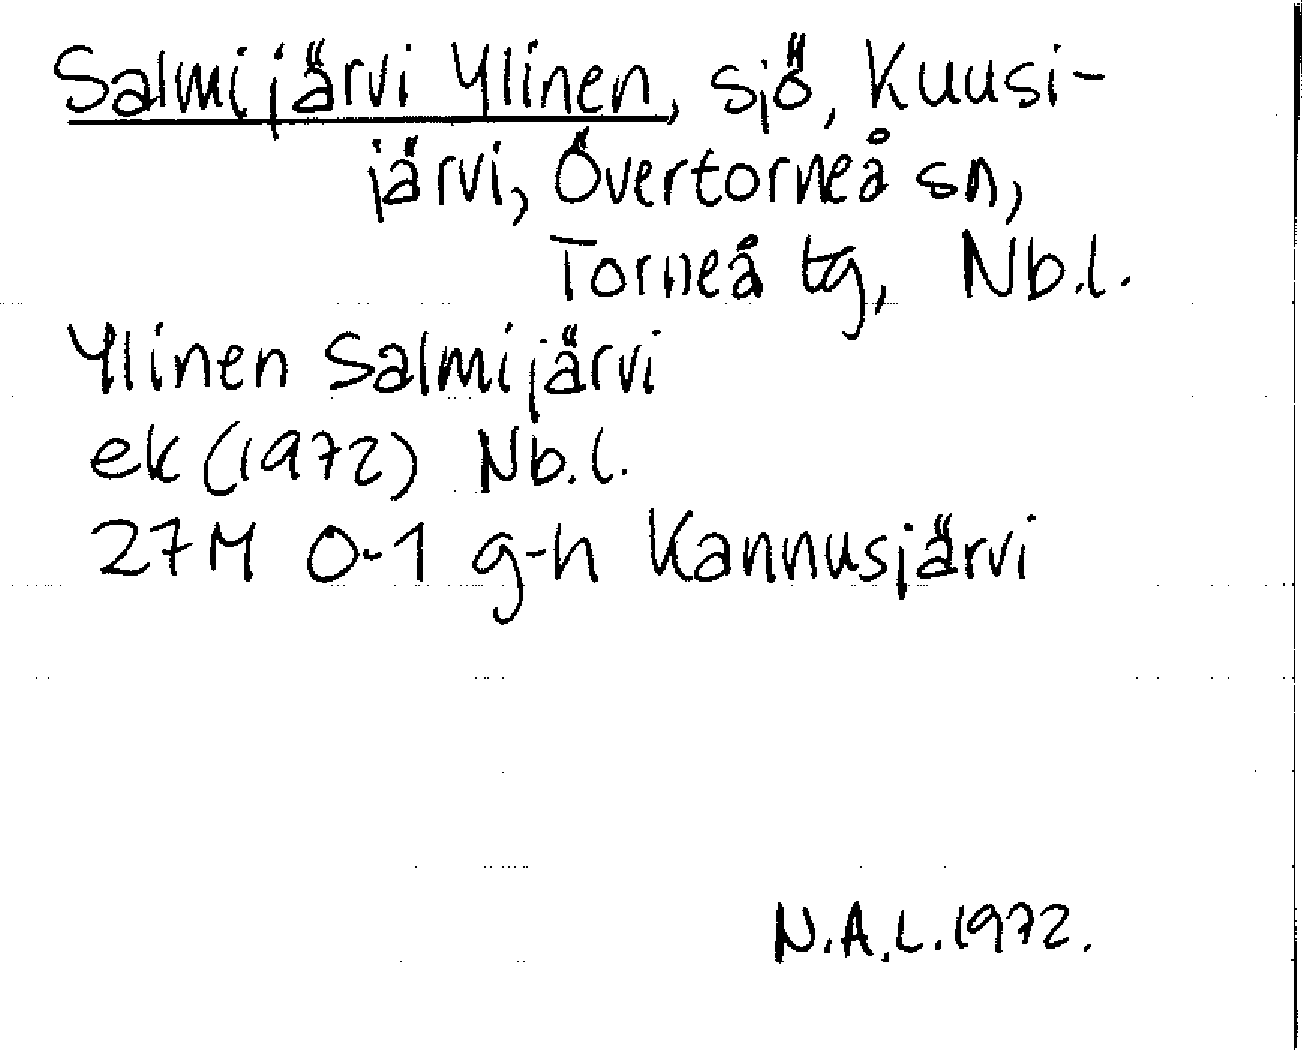 Salmijärvi Ylinen, sjö, Kuusi-
järvi, Övertorneå sn,
Torneå tg, Nb.l.
Ylinen Salmijärvi
ek (1972) Nb.l.
27M 0-1 g-h Kannusjärvi
N.A.L. 1972.